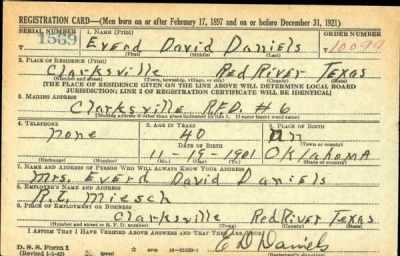 REGISTRATION CARD—(Men born on or after February 17, 1897 and on or before December 31, 1921)
SERIAL NUMBER 1. NAME (Print) ORDER NUMBER
1569 Everd David Daniels 10099
2. PLACE OF RESIDENCE (Print)
Clarksville Red River Texas
(Number and street) (Town, township, village, or city) (County) (State)
[THE PLACE OF RESIDENCE GIVEN ON THE LINE ABOVE WILL DETERMINE LOCAL BOARD
JURISDICTION; LINE 2 OF REGISTRATION CERTIFICATE WILL BE IDENTICAL]
3. MAILING ADDRESS
Clarksville R.F.D. #6
[Mailing address if other than place indicated on line 2. If same insert word same]
4. TELEPHONE 5. AGE IN YEARS 6. PLACE OF BIRTH
none 40
DATE OF BIRTH
11-19-1901 Oklahoma
(Exchange) (Number) (Mo.) (Day) (Yr.) (State or country)
7. NAME AND ADDRESS OF PERSON WHO WILL ALWAYS KNOW YOUR ADDRESS
Mrs. Everd David Daniels
8. EMPLOYER'S NAME AND ADDRESS
R.L. Miesch
9. PLACE OF EMPLOYMENT OR BUSINESS
Clarksville Red River Texas
(Number and street or R. F. D. number) (Town) (County) (State)
I AFFIRM THAT I HAVE VERIFIED ABOVE ANSWERS AND THAT THEY ARE TRUE.
D. S. S. Form 1
(Revised 1-1-42) (over)
E D Daniels